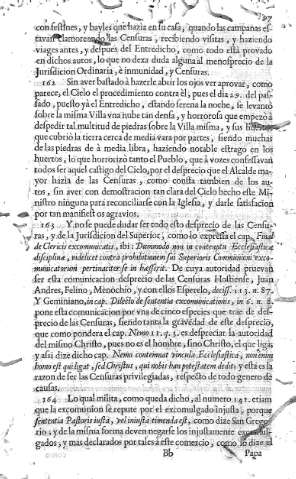 con festines, y bayles que hazia en su casa, quando las campanas es
tavan clamoreando las Censuras, recibiendo visitas, y haziendo
viages antes, y despues del Entredicho, como todo está provado
en dichos autos, lo que no dexa duda alguna al menosprecio de la
Jurisdicion Ordinaria, è inmunidad, y Censuras.
162 Sin aver bastado à hazerle abrir los ojos ver aprovae, como
parece, el Cielo el procedimiento contra èl, pues el dia 29. del pas-
sado, puesto yà el Entredicho, estando serena la noche, se levantò
sobre la misma Villa vna nube tan densa, y horrorosa que empezò à
despedir tal multitud de piedras sobre la Villa misma, y sus
que cubriò la tierra cerca de media vara por partes, siendo muchas
de las piedras de à media libra, haziendo notable estrago en los
huertos, lo que horrorizò tanto el Pueblo, que à vozes confessavan
todos ser aquel castigo del Cielo, por el desprecio que el Alcalde ma-
yor hazia de las Censuras, como consta tambien de los au-
tos, sin aver con demostracion tan clara del Cielo hecho este Mi-
nistro ninguna para reconciliarse con la Iglesia, y darle satisfacion
por tan manifiestos agravios.
163 Y no se puede dudar ser todo esto desprecio de las Censu-
ras, y de la jurisdiccion del Superior, como lo expressa el cap. Final
de Clericis excomunicatis, ibi: Dummodo non in contemptu Ecclesiasticæ
disciplinæ, videlicet contra prohibitionem sui Superioris Communioni exco-
municatorum pertinaciter se in hæsserit. De cuya autoridad pruevan
ser esta comunicacion desprecio de las Censuras Hostiense, Juan
Andres, Felino, Menochio, y con ellos Esperelo, decis. 113. n. 87.
Y Geminiano, in cap. Dilecto de sententia excomunicationis, in 6. n. 8.
pone esta comunicacion por vna de cinco especies que trae de des-
precio de las Censuras, siendo tanta la gravedad de este desprecio,
que como pondera el cap. Nemo 12. q. 3. es despreciar la autoridad
del mismo Christo, pues no es el hombre, sino Christo, el que liga,
y assi dize dicho cap. Nemo contemnat vincula Ecclesiastica, non enim
homo est qui ligat, sed Christus, qui nobis hanc potestatem dedit; y esta es la
razon de ser las Censuras privilegiadas, respecto de todo genero de
causas.
164 Lo qual milita, como queda dicho, al numero 141. etiam
que la excomunion se repute por el excomulgado injusta, porque
sententia Pastoris justa, vel injusta timenda est, como dize San Grego-
rio, y de la misma forma deven negarse los injustamente excomul-
gados, y mas declarados por tales à este comercio, como lo dize el
Bb Papa